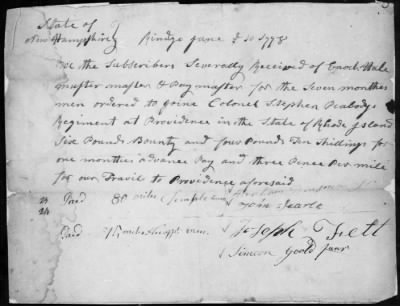 State of
New Hampshire } Rindge June 1778
We the Subscribers Severally Received of Enoch Hale
muster master & Pay master for the Seven months
men ordered to joine Colonel Stephen Peabodys
Regiment at Providence in the State of Rhode Island
Six Pounds Bounty and four Pounds Ten Shillings for
one months advance Pay and three Pence Per mile
for our Travile to Providence aforesaid
Paid 80 miles
24 John Searle
Paid men Joseph Frett
Simeon Gould Junr